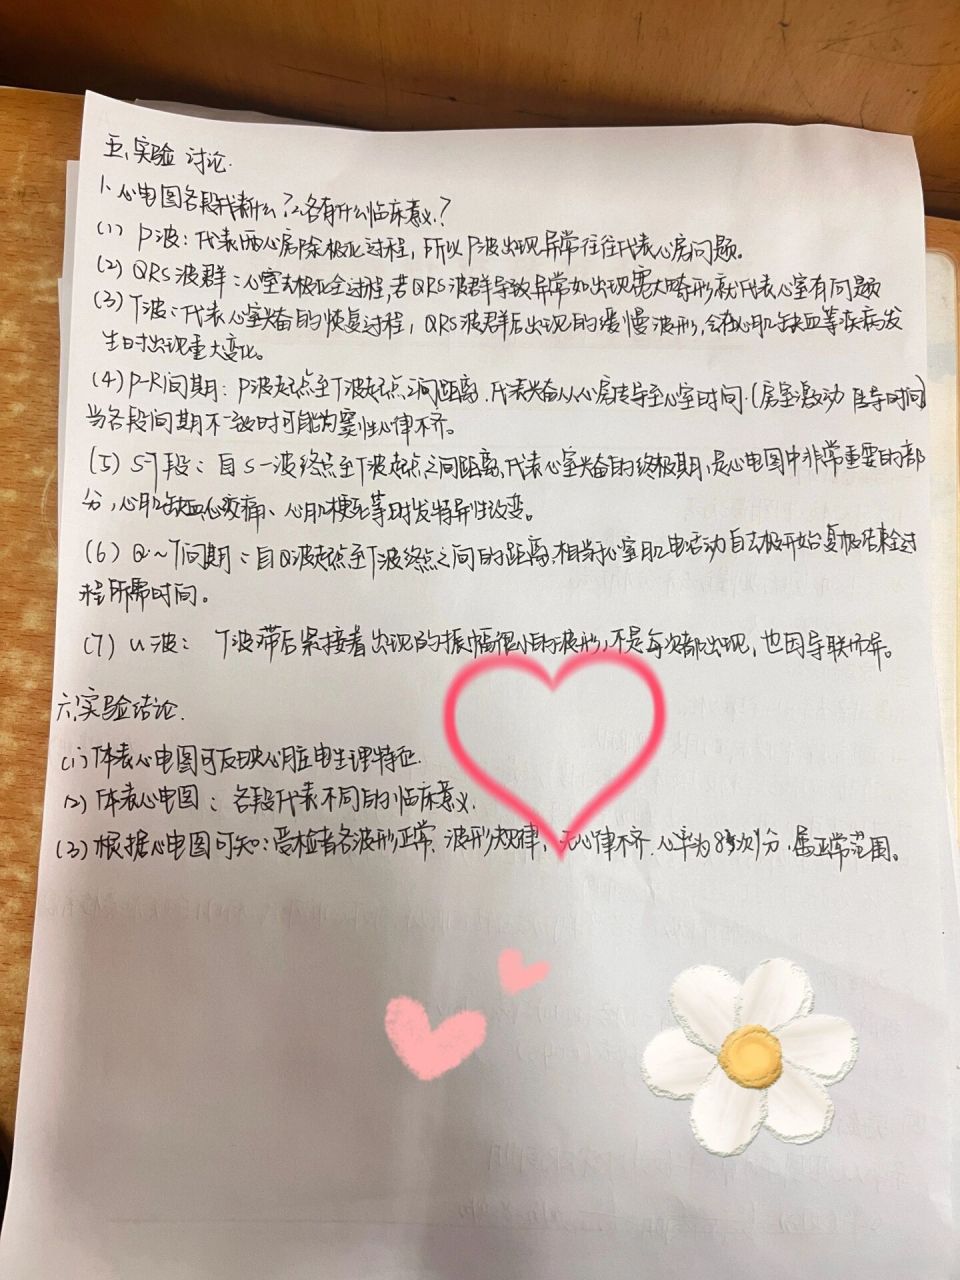 五、实验 讨论.
1、心电图各段代表什么?各有什么临床意义?
(1) P波：代表两心房除极化过程，所以P波出现异常往往代表心房问题。
(2) QRS波群：心室去极化全过程,若QRS波群导致异常如出现宽大畸形就代表心室有问题
(3) T波：代表心室兴奋的恢复过程，QRS波群后出现的缓慢波形,会在心肌缺血等疾病发
生时出现重大变化。
(4) P-R间期：P波起点至T波起点之间距离.代表兴奋从心房传导至心室时间.(房室激动 导时间)
当各段间期不一致时可能为窦性心律不齐。
(5) ST段：自S-波终点至T波起点之间距离,代表心室兴奋的终极期,是心电图中非常重要的部
分,心肌缺血心绞痛、心肌梗死等时发特异性改变。
(6) Q~T间期：自Q波起点至T波终点之间的距离,相当于心室肌电活动自去极开始复极结束全过
程所需时间。
(7) u波： T波滞后紧接着出现的振幅很小的波形,不是每次都出现，也因导联而异。
六,实验结论.
(1)体表心电图可反映心脏电生理特征.
(2)体表心电图：各段代表不同的临床意义.
(3)根据心电图可知：受检者各波形正常、波形规律，无心律不齐.心率为 次/分.属正常范围。